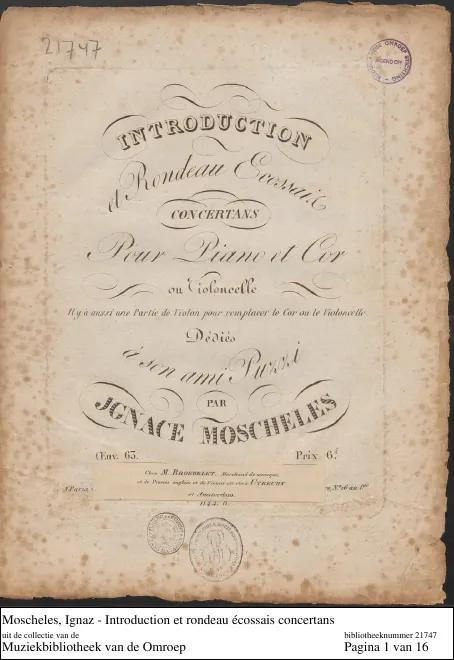 21747
INTRODUCTION
et Rondeau Ecossais
CONCERTANS
Pour Piano et Cor
ou Violoncelle
Il y à aussi une Partie de Violon pour remplacer le Cor ou le Violoncelle.
Dédiés
à son ami Puzzi
PAR
JGNACE MOSCHELES
Œuv. 63. Prix 6.f
Chez M. BROEDELET, Marchand de musique,
et de Pianos anglais et de Vienne
UTRECHT
A Paris
et Amsterdam.
Moscheles, Ignaz - Introduction et rondeau écossais concertans
uit de collectie van de bibliotheeknummer 21747
Muziekbibliotheek van de Omroep Pagina 1 van 16